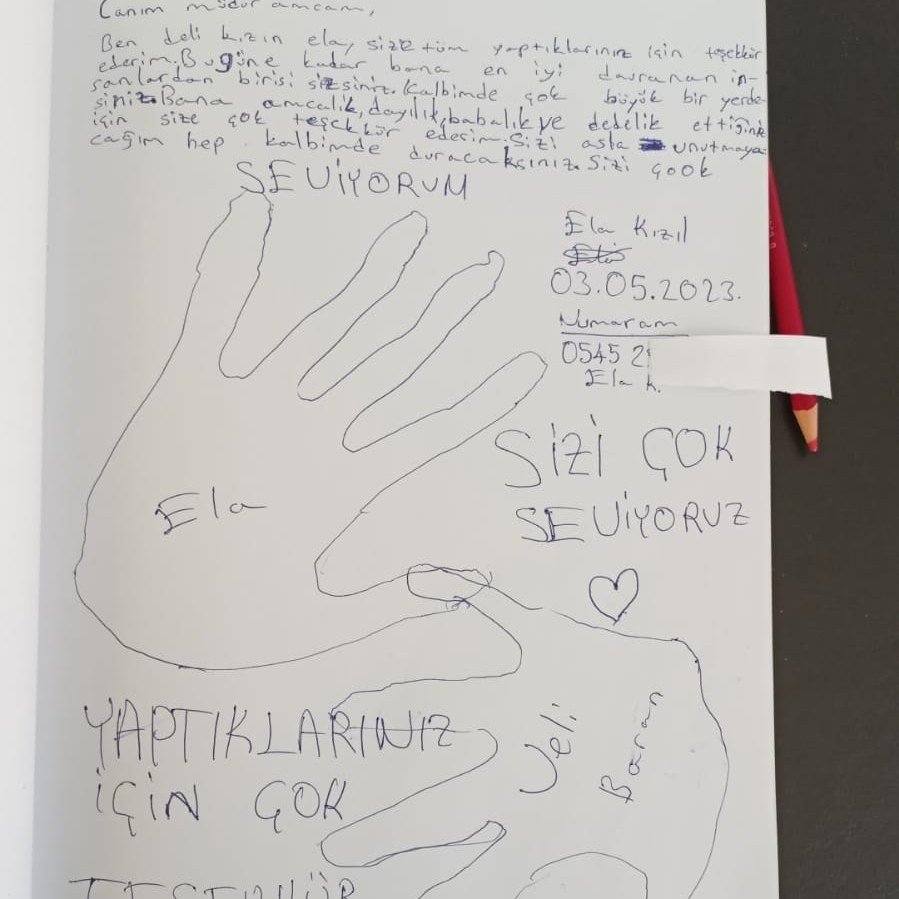 Canım müdür amcam,
Ben deli kızın ela, size tüm yaptıklarınız için teşekkür
ederim. Bugüne kadar bana en iyi davranan in-
sanlardan birisi sizsiniz. Kalbimde çok büyük bir yerde
siniz. Bana amcalık, dayılık, babalık ve dedelik ettiğiniz
için size çok teşekkür ederim. Sizi asla unutmaya
cağım hep kalbimde duracaksınız. Sizi çook
SEViYORUM
Ela Kızıl
03.05.2023.
Numaram
0545 2
Ela K.
SiZi ÇOK
SEViYORUZ
Ela
Veli
Baran
YAPTIKLARINIZ
iÇiN ÇOK
TEŞEKKÜR